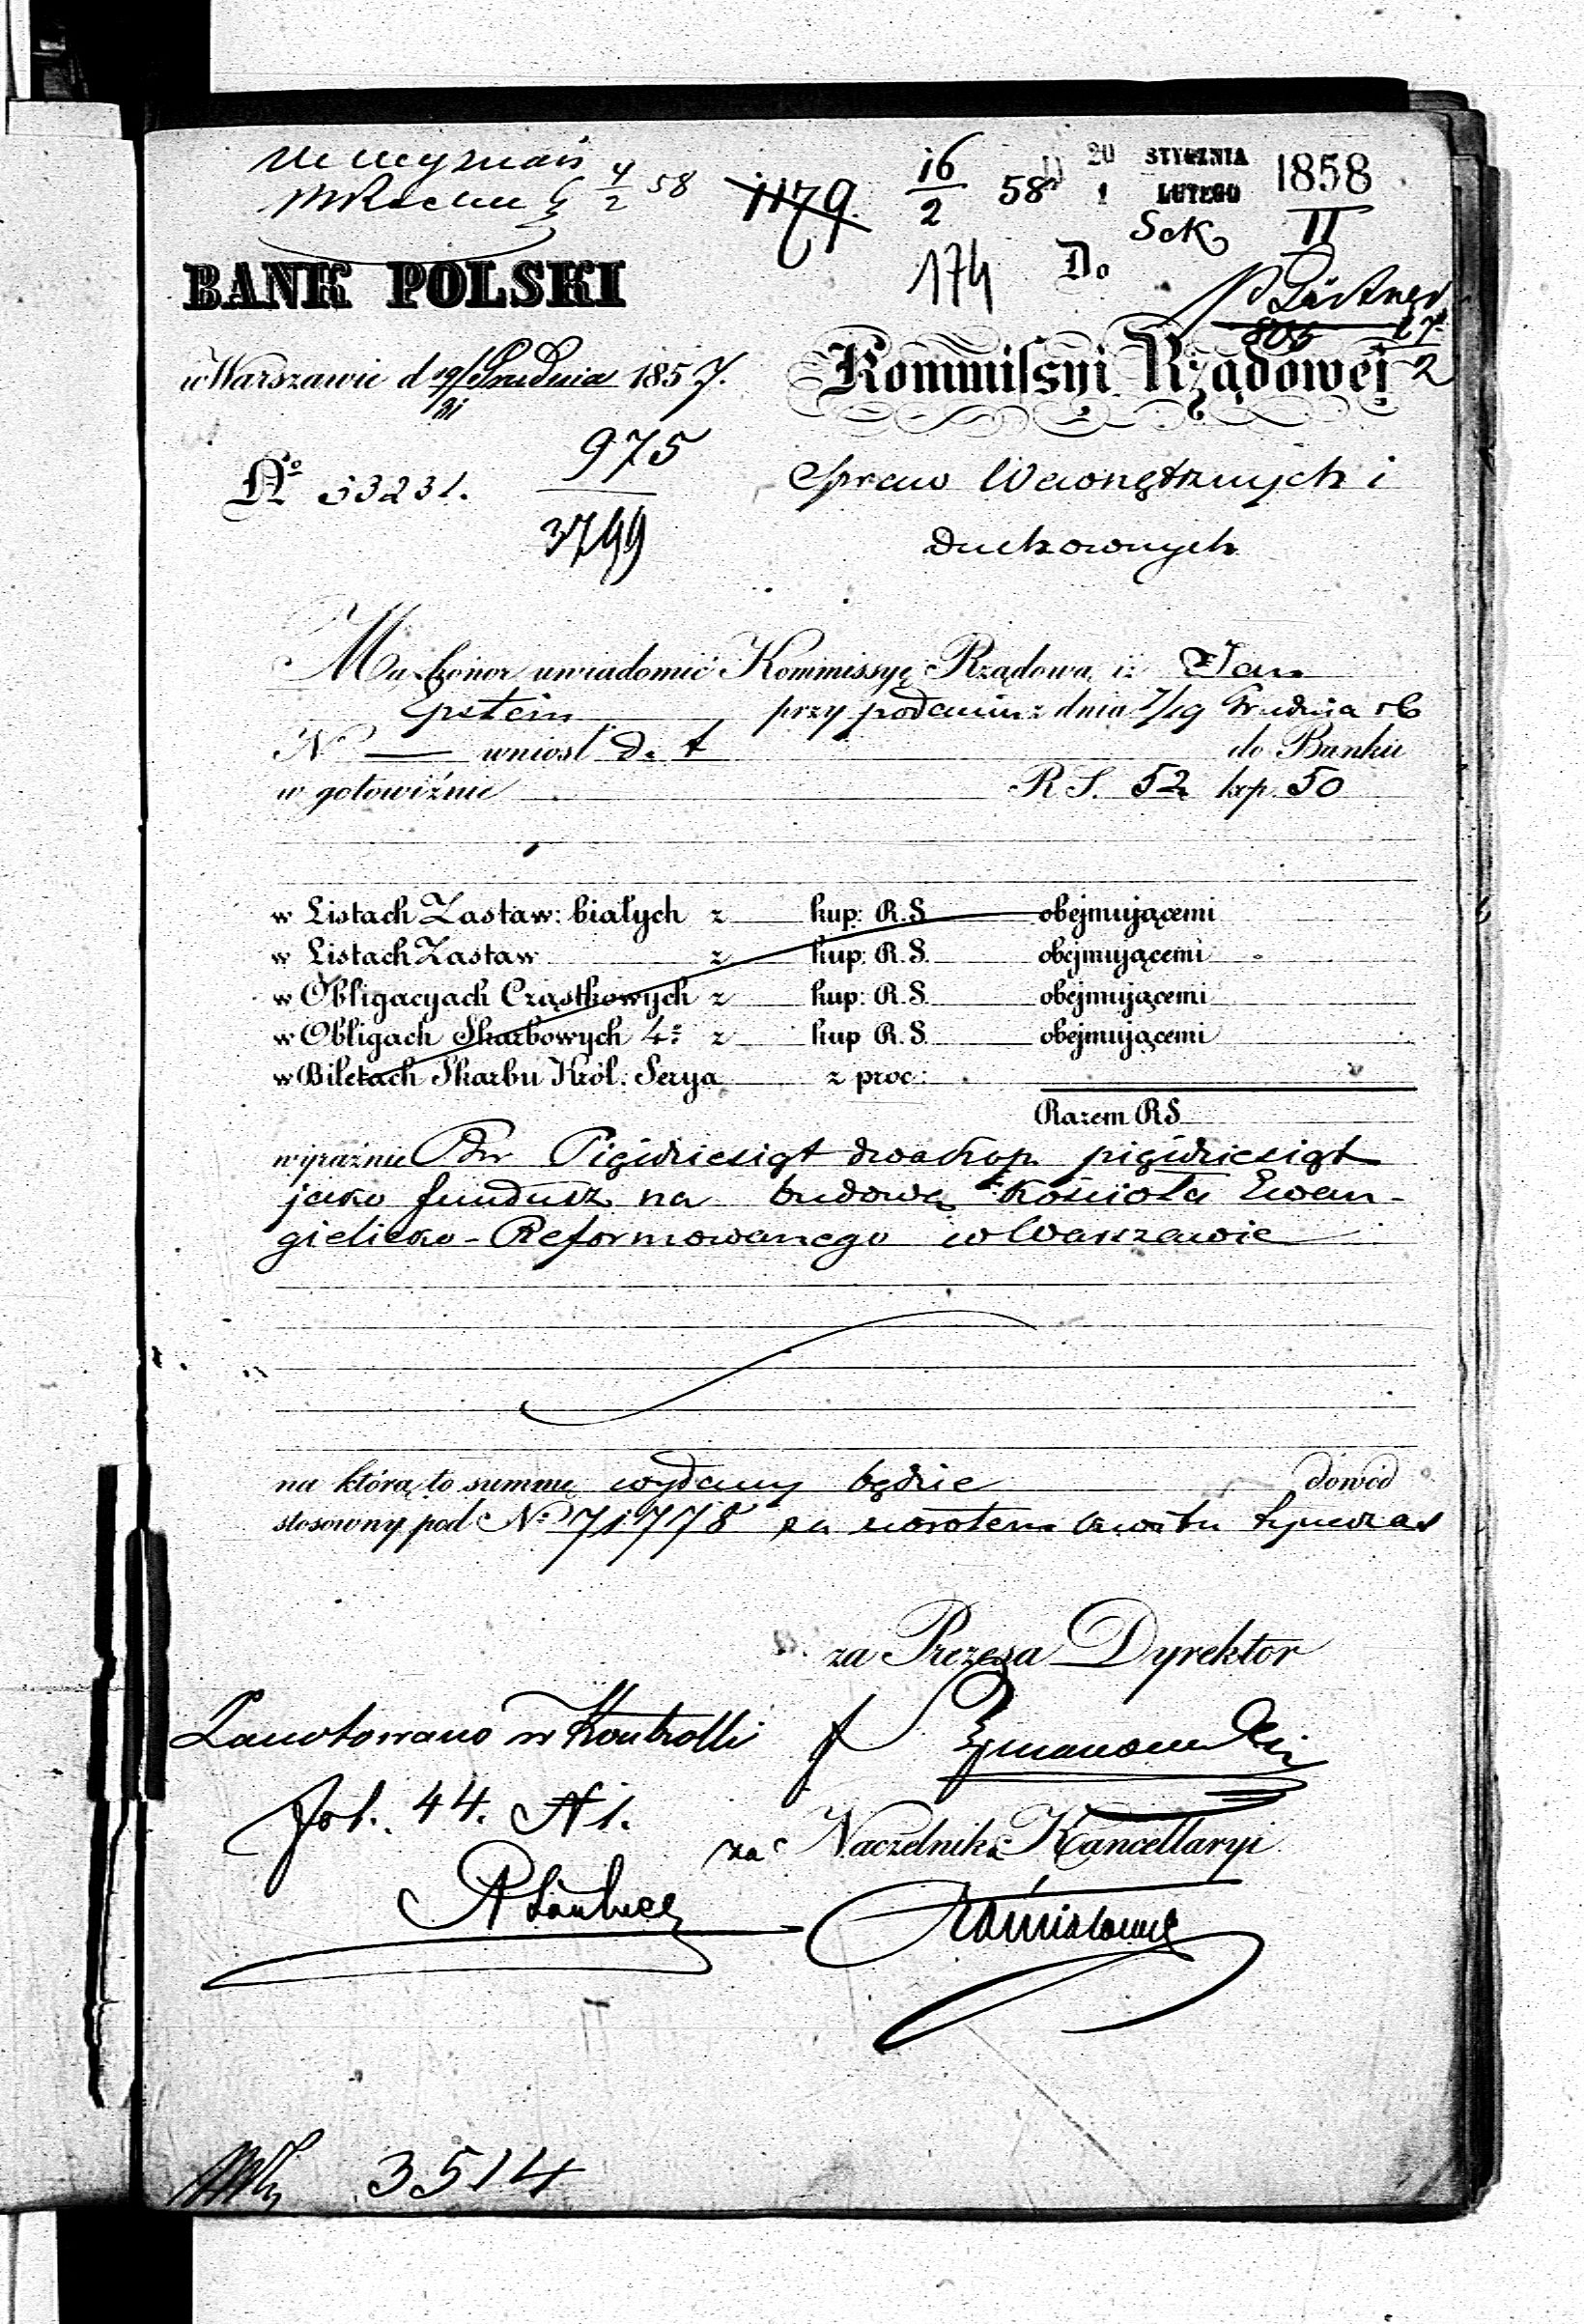 4/2 58
1179.
16/2 58
20 STYCZNIA 1858
1 LUTEGO
Sek II
174
Do
BANK POLSKI
806 17/2
w Warszawie d 19/31 Grudnia 1857.
Kommissyi Rządowéj
No 53231.
975
3799
Spraw Wewnętrznych i
Duchownych
Ma honor uwiadomić Kommissyę Rządową, iż Jan
Epstein przy podaniu z dnia 7/19 Grudnia rb
No — wniosł d. t do Banku
w gotowiźnie R S. 52 kp. 50
w Listach Zastaw: białych z kup: R.S. obejmującemi
w Listach Zastaw z kup: R.S. obejmującemi
w Obligacyach Cząstkowych z kup: R.S. obejmującemi
w Obligach Skarbowych 4% z kup R.S. obejmującemi
w Biletach Skarbu Król: Serya z proc:
Razem RS
wyraźnie Rsr Pięćdziesiąt dwa kop. pięćdziesiąt
jako fundusz na budowę Kościoła Ewan-
gielicko-Reformowanego w Warszawie
na którą to summę wydany będzie dowód
stosowny pod No 71778 za zwrotem kwitu tymczas
za Prezesa Dyrektor
Zanotowano w Kontrolli
fol. 44. N 1.
za Naczelnika Kancellaryi
3514